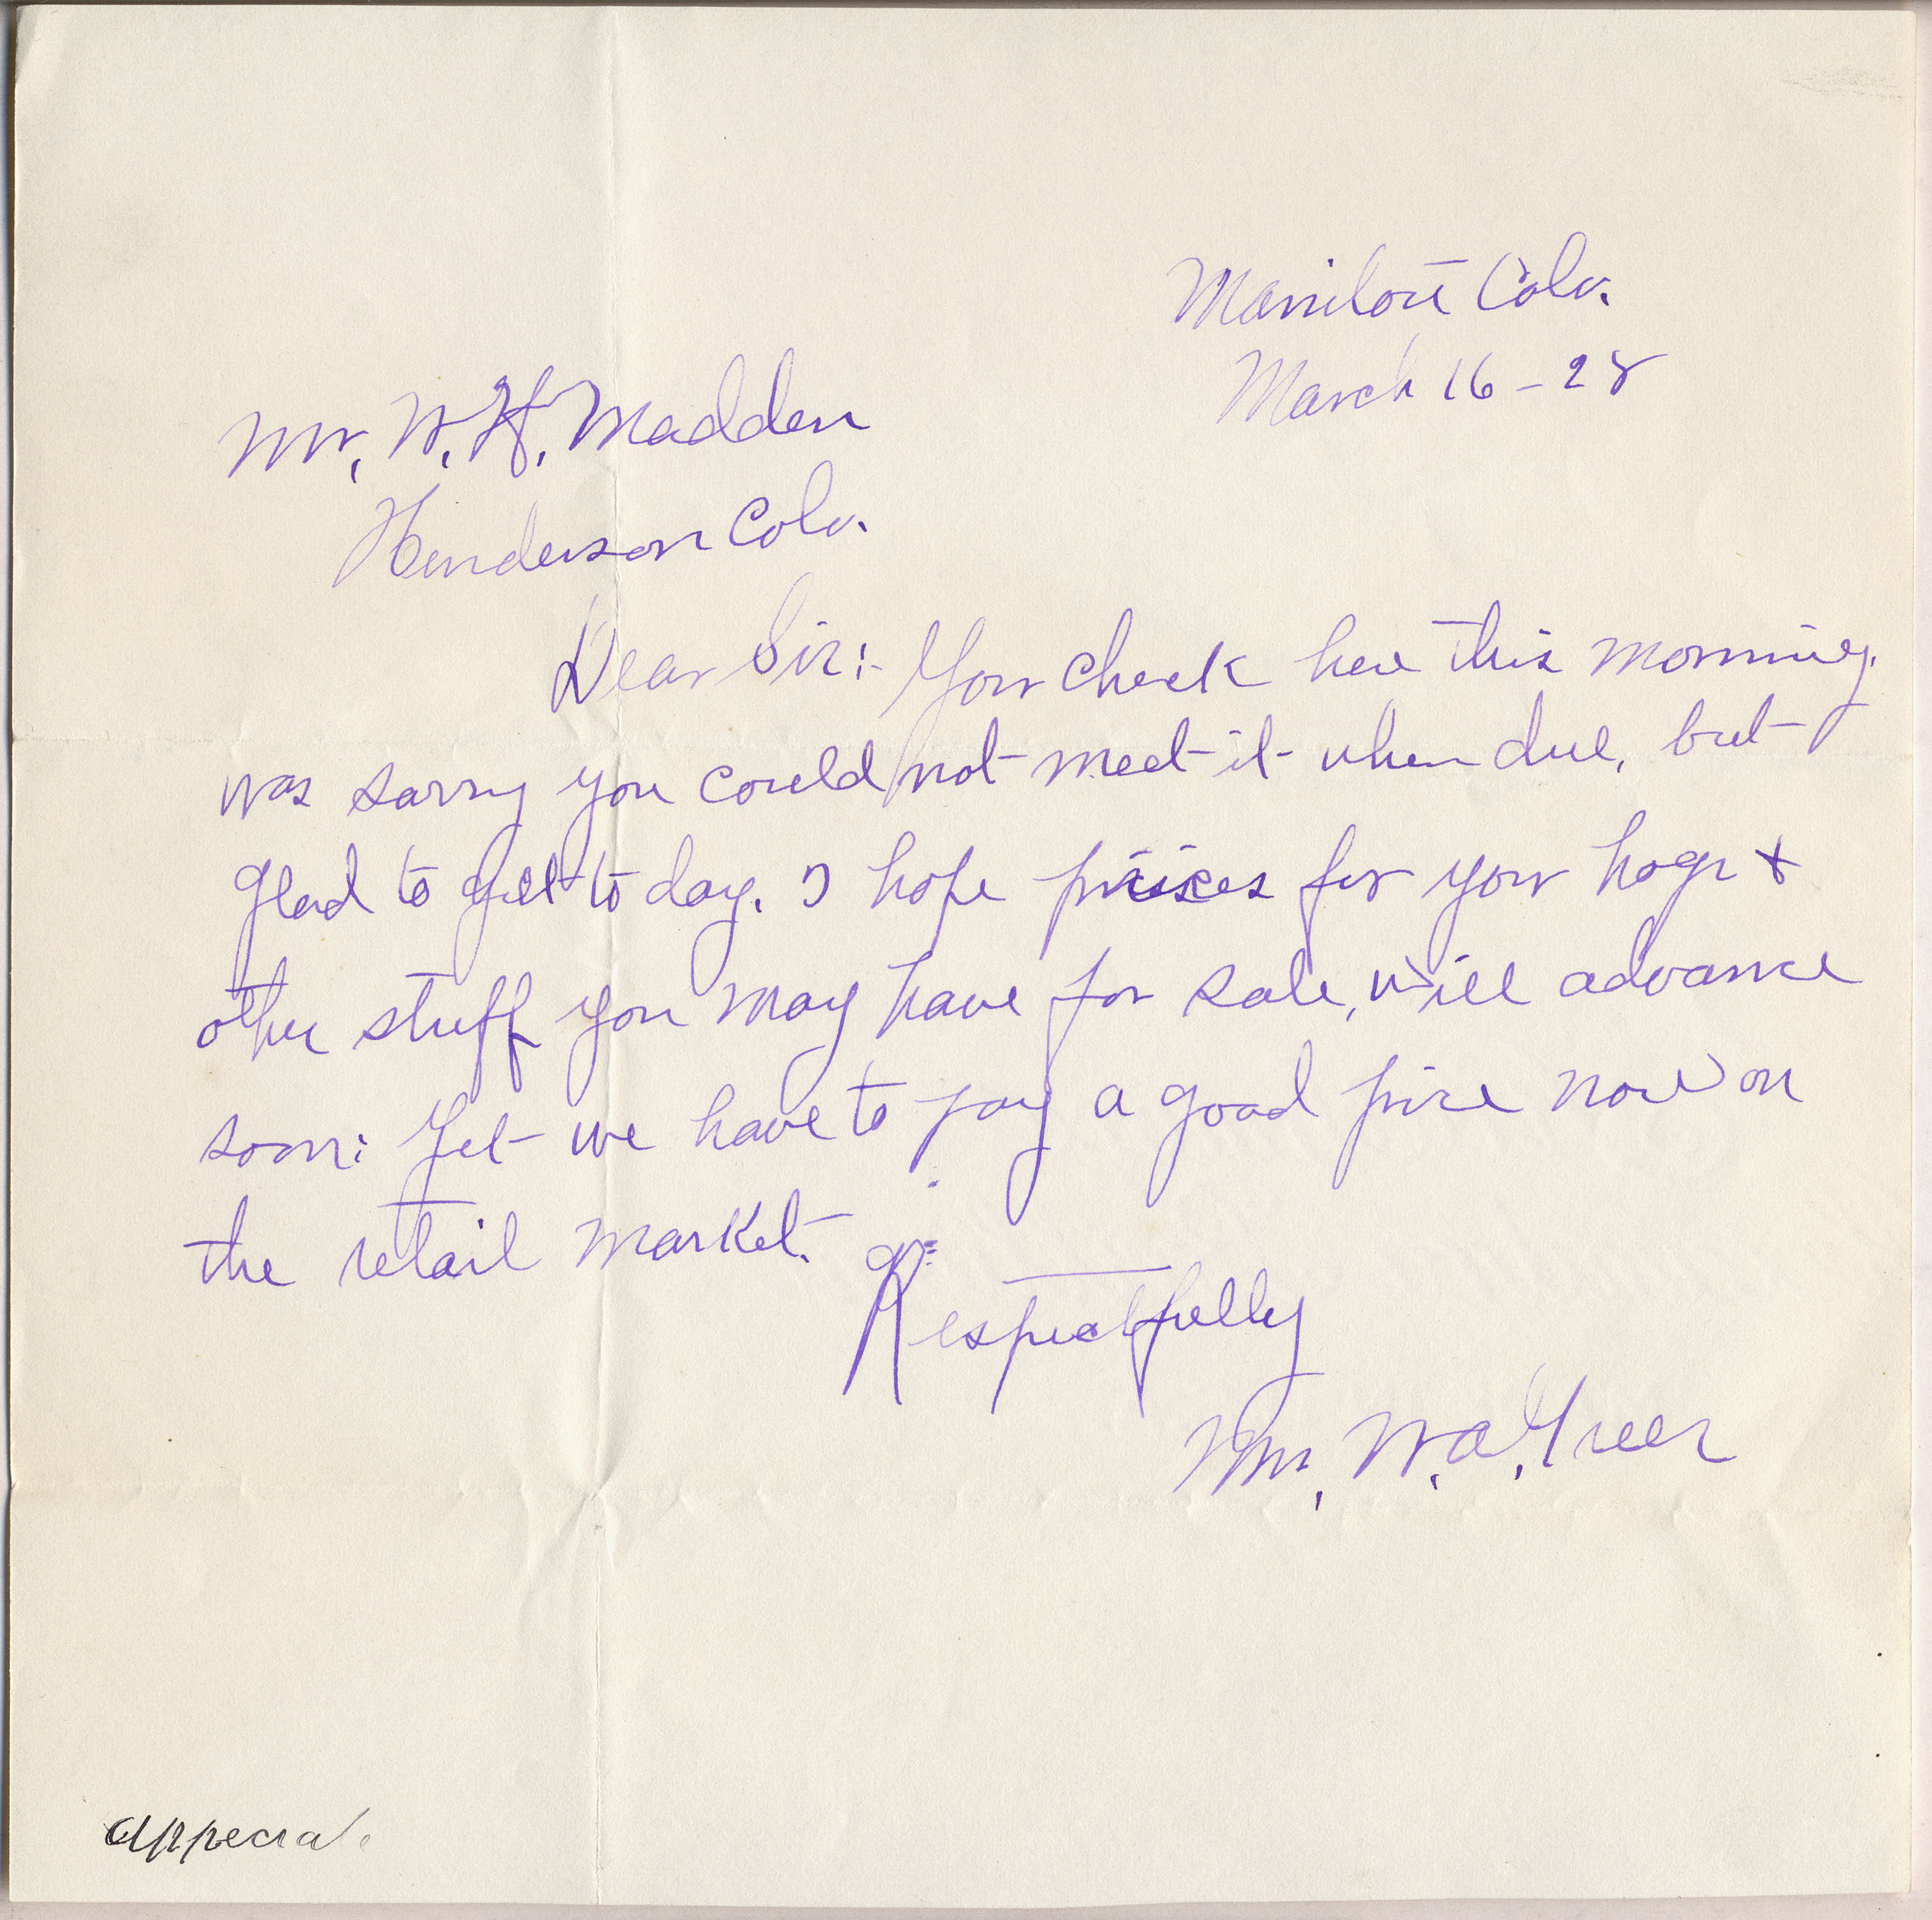 Manitou Colo.
March 16 - 28
Mr. W. H. Madden
Henderson Colo.
Dear Sir:- Your check here this morning.
was sorry you could not meet it when due, but
glad to get to day. I hope prices for your hogs +
other stuff you may have for sale, will advance
soon: Yet we have to pay a good price now on
the retail market.
Respectfully
W. A. Greer
appecia